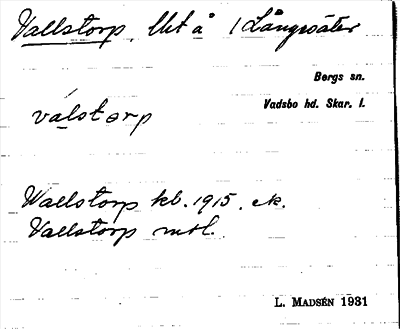 Vallstorp, lht å 1 Långsäter
Bergs sn.
Vadsbo hd. Skar. l.
válstorp
Wallstorp kb. 1915, ek.
Vallstorp mtl.
L. MADSÉN 1931